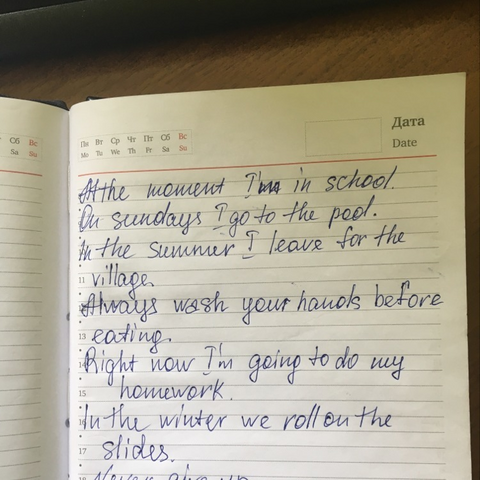 Сб Вс
Sa Su
Пн Вт Ср Чт Пт Сб Вс
Mo Tu We Th Fr Sa Su
Дата
Date
At the moment I'm in school.
On sundays I go to the pool.
In the summer I leave for the
11 village.
Always wash your hands before
13 eating.
14 Right now I'm going to do my
15 homework.
16 In the winter we roll on the
17 slides.
18 Never give up